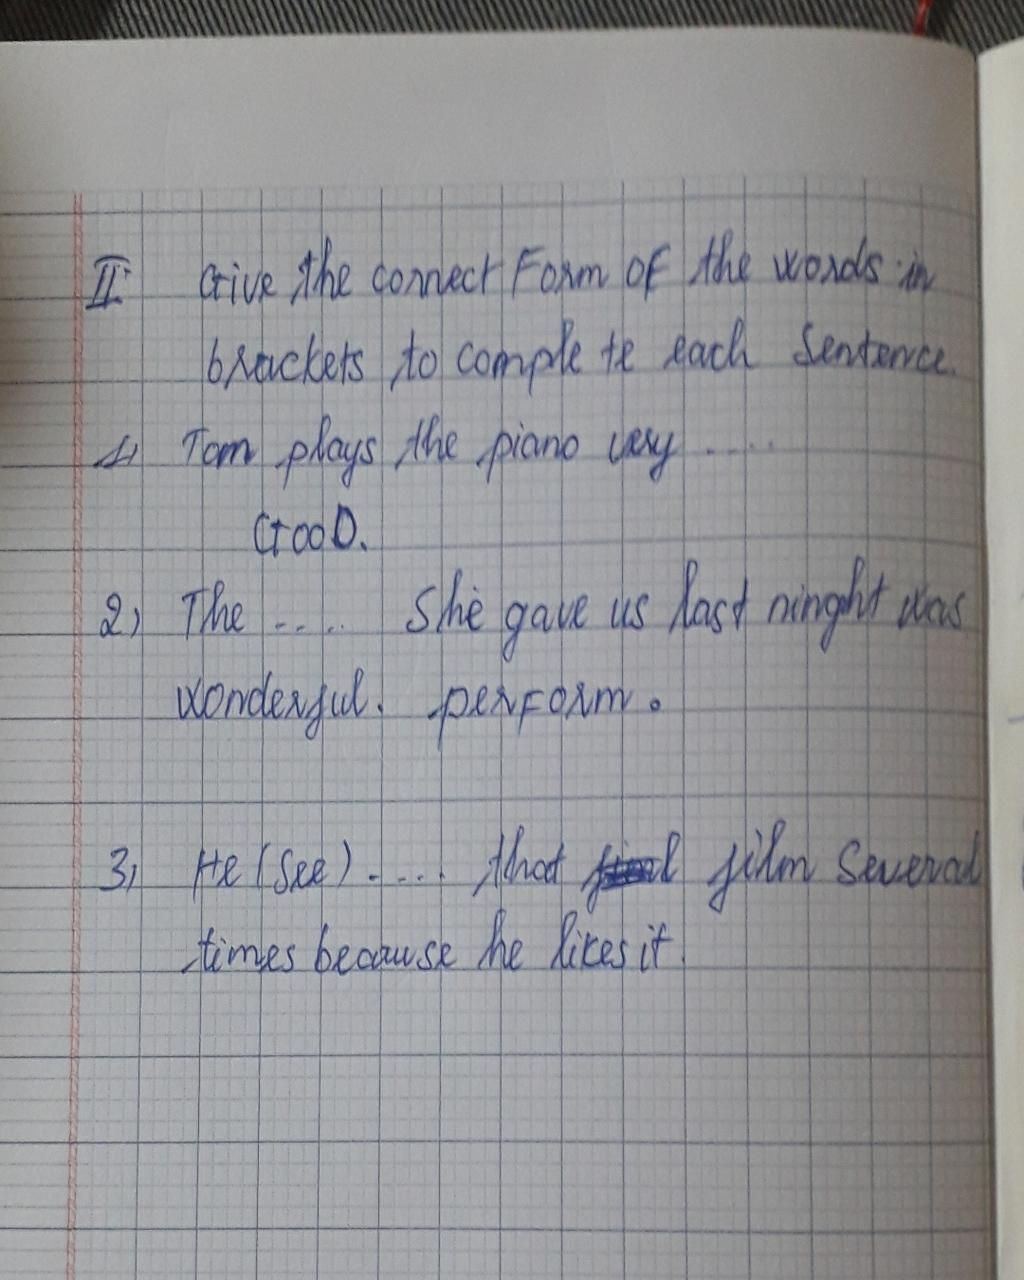 II Give the correct Form of the words in
brackets to comple te each Sentence.
1, Tom plays the piano very .....
GooD.
2, The ..... She gave us last ninght was
wonderful. perform.
3, He (See) ..... that film Several
times because he likes it.